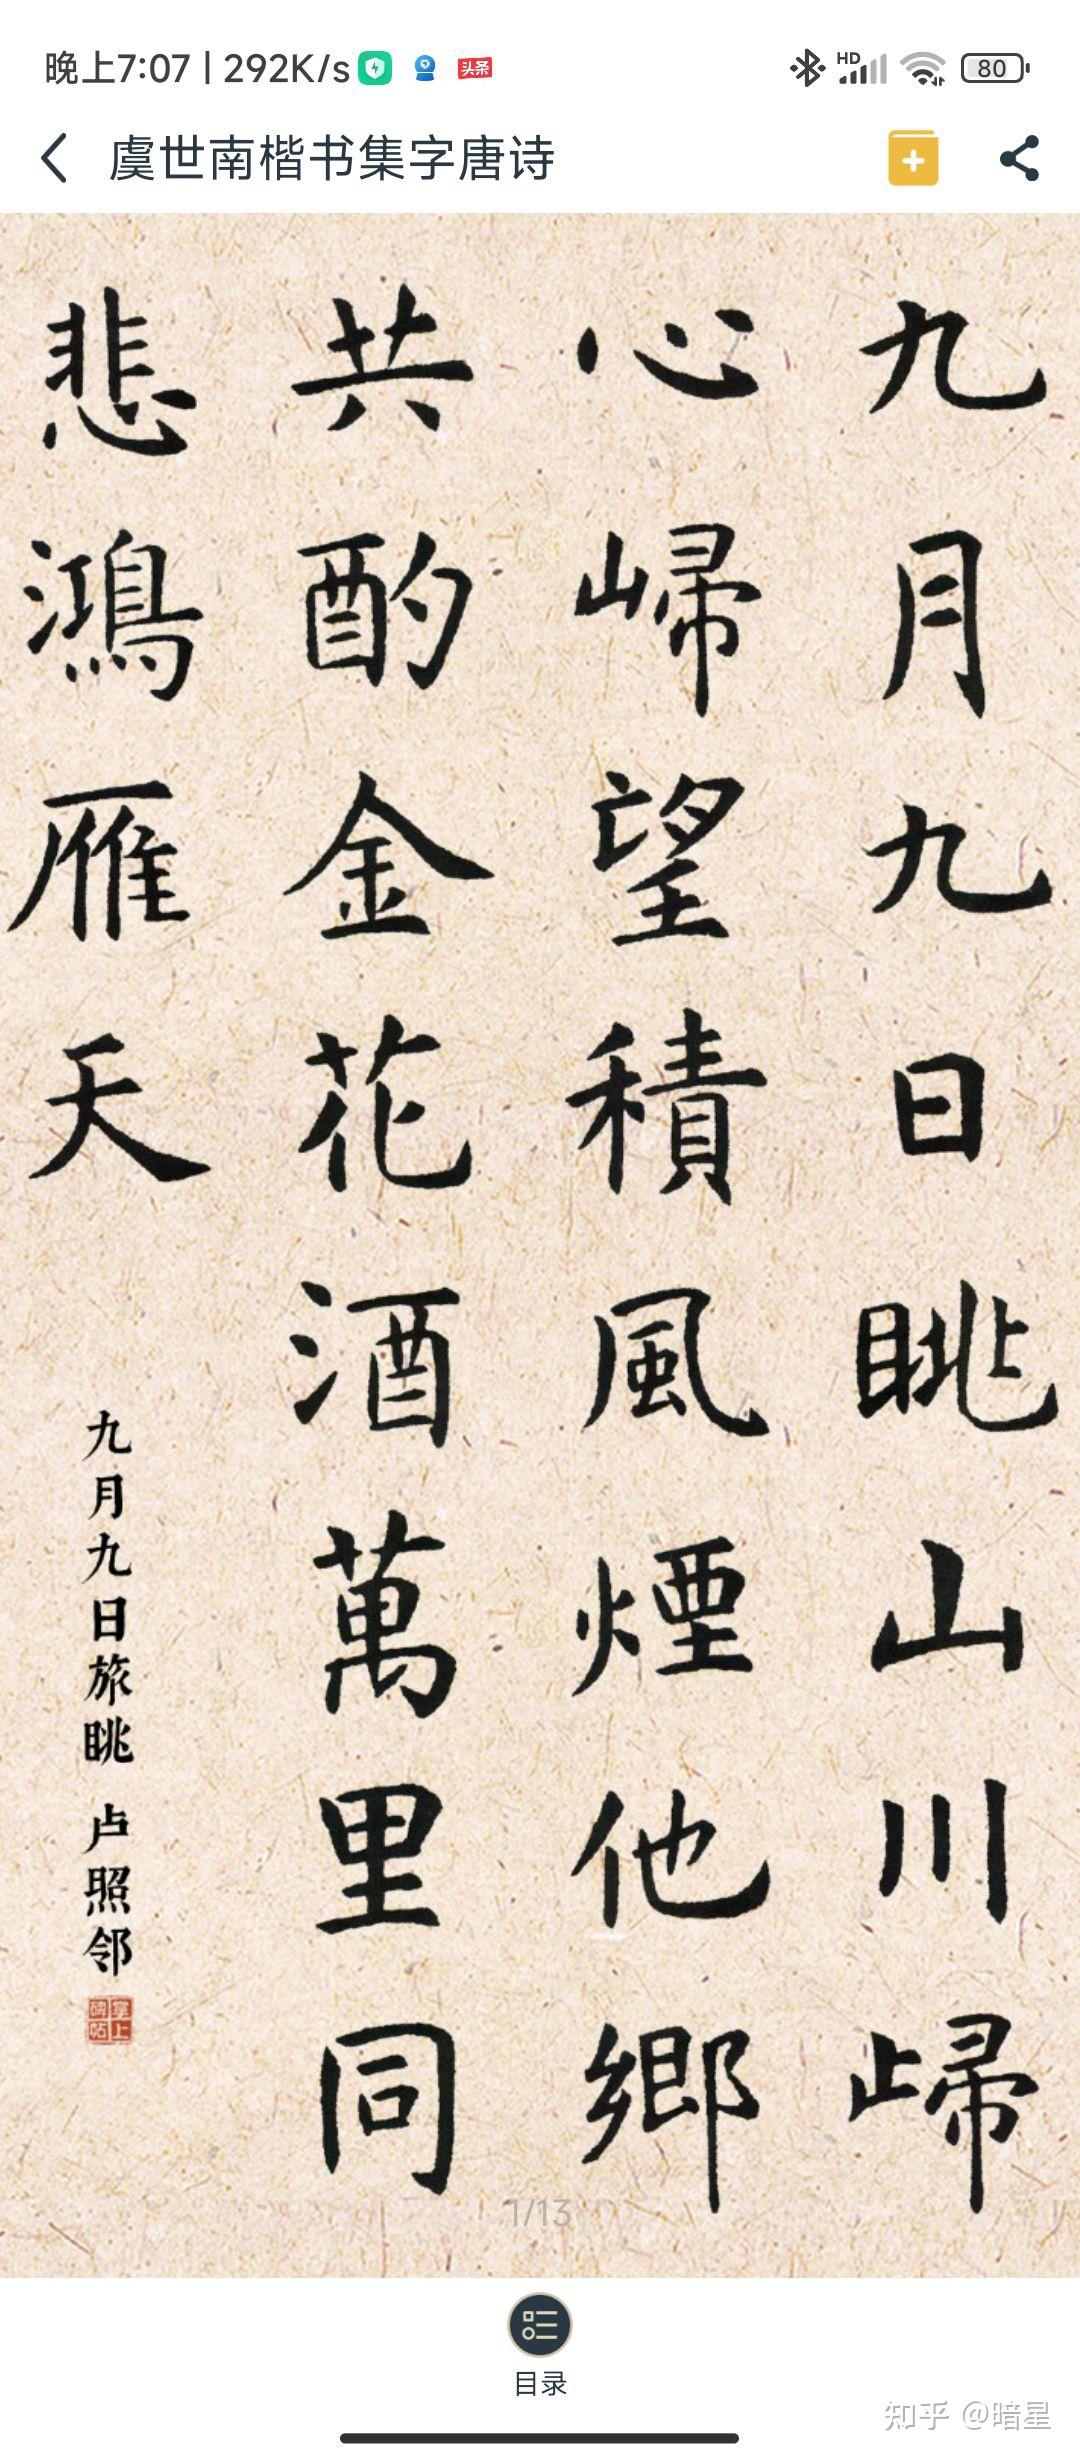 晚上7:07 | 292K/s
头条
HD
80
虞世南楷书集字唐诗
九月九日眺山川歸
心歸望積風煙他鄉
共酌金花酒萬里同
悲鴻雁天
九月九日旅眺 卢照邻
掌上碑帖
1/13
目录
知乎 @暗星